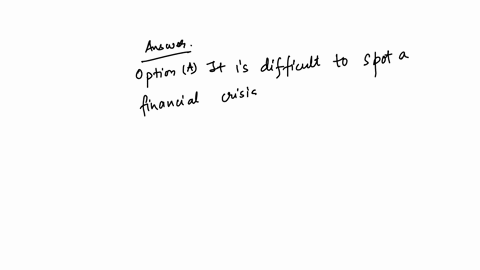 Answer.
Option (A) It is difficult to spot a
financial crisis